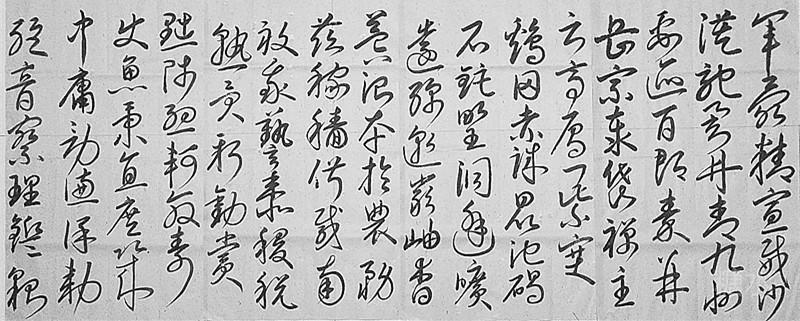 軍最精宣威沙
漠馳譽丹青九州
禹跡百郡秦并
嶽宗泰岱禪主
云亭雁門紫塞
雞田赤城昆池碣
石鉅野洞庭曠
遠綿邈巖岫杳
冥治本於農務
茲稼穡俶載南
畝我藝黍稷稅
熟貢新勸賞
黜陟孟軻敦素
史魚秉直庶幾
中庸勞謙謹敕
聆音察理鑑貌